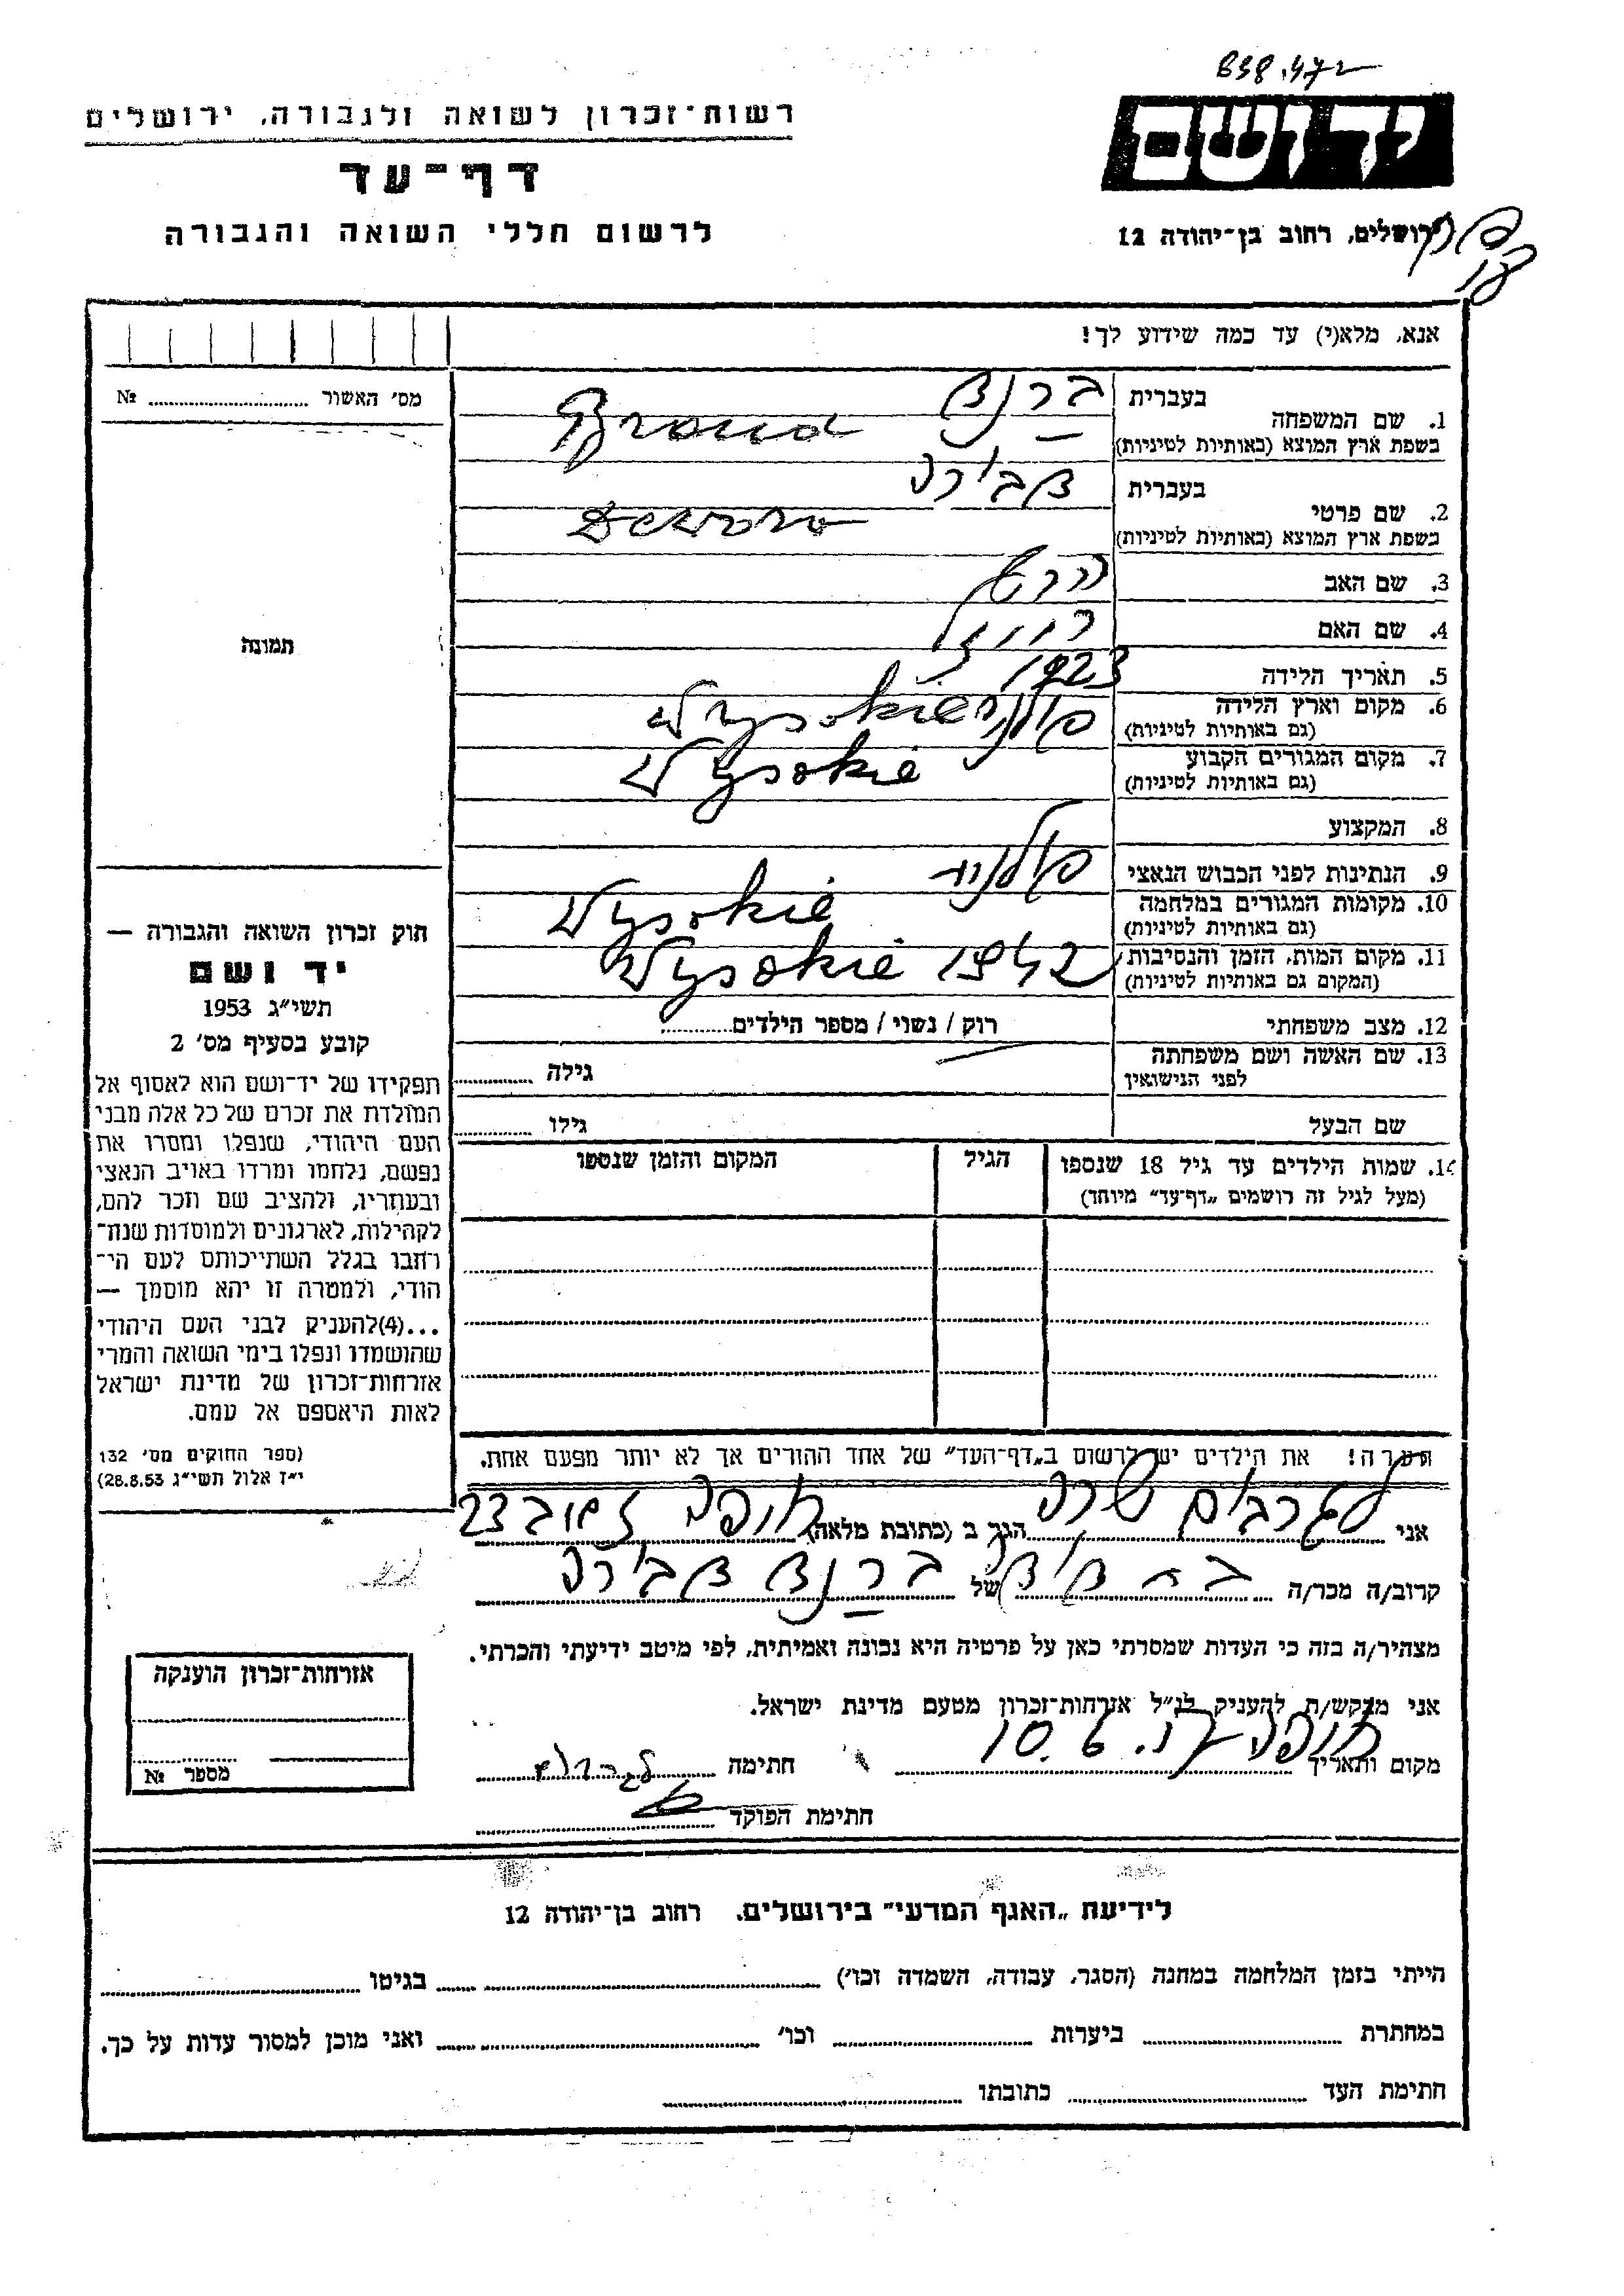 838.472
רשות־זכרון לשואה ולגבורה, ירושלים
יד ושם
דף־עד
לרשום חללי השואה והגבורה
ירושלים, רחוב בן־יהודה 12
אנא, מלא(י) עד כמה שידוע לך!
מס׳ האשור № 
1. שם המשפחה
בעברית ברנד
בשפת ארץ המוצא (באותיות לטיניות) Brand
2. שם פרטי
בעברית דבורה
בשפת ארץ המוצא (באותיות לטיניות)
3. שם האב הרשל
4. שם האם
5. תאריך הלידה 1923
6. מקום וארץ הלידה
(גם באותיות לטיניות) פולניה Wysokie
7. מקום המגורים הקבוע
(גם באותיות לטיניות) Wysokie
8. המקצוע
9. הנתינות לפני הכבוש הנאצי פולנית
10. מקומות המגורים במלחמה
(גם באותיות לטיניות) Wysokie
11. מקום המות, הזמן והנסיבות
(המקום גם באותיות לטיניות) Wysokie 1942
12. מצב משפחתי רוק / נשוי / מספר הילדים
13. שם האשה ושם משפחתה
לפני הנישואין גילה
שם הבעל גילו
14. שמות הילדים עד גיל 18 שנספו
(מעל לגיל זה רושמים „דף־עד״ מיוחד)
הגיל
המקום והזמן שנספו
תמונה
חוק זכרון השואה והגבורה —
יד ושם
תשי״ג 1953
קובע בסעיף מס׳ 2
תפקידו של יד־ושם הוא לאסוף אל
המולדת את זכרם של כל אלה מבני
העם היהודי, שנפלו ומסרו את
נפשם, נלחמו ומרדו באויב הנאצי
ובעוזריו, ולהציב שם וזכר להם,
לקהילות, לארגונים ולמוסדות שנח־
רבו בגלל השתייכותם לעם הי־
הודי, ולמטרה זו יהא מוסמך —
...(4)להעניק לבני העם היהודי
שהושמדו ונפלו בימי השואה והמרי
אזרחות־זכרון של מדינת ישראל
לאות היאספם אל עמם.
(ספר החוקים מס׳ 132
י״ז אלול תשי״ג 28.8.53)
הערה! את הילדים יש לרשום ב„דף־העד״ של אחד ההורים אך לא יותר מפעם אחת.
אני שרה הגר ב (כתובת מלאה) חיפה 23
קרוב/ה מכר/ה בת דוד של ברנד דבורה
מצהיר/ה בזה כי העדות שמסרתי כאן על פרטיה היא נכונה ואמיתית, לפי מיטב ידיעתי והכרתי.
אני מבקש/ת להעניק לנ״ל אזרחות־זכרון מטעם מדינת ישראל.
מקום ותאריך חיפה 10.6. חתימה
חתימת הפוקד
אזרחות־זכרון הוענקה
מספר №
לידיעת „האגף המדעי״ בירושלים, רחוב בן־יהודה 12
הייתי בזמן המלחמה במחנה (הסגר, עבודה, השמדה וכו׳) בגיטו
במחתרת ביערות וכו׳ ואני מוכן למסור עדות על כך.
חתימת העד כתובתו